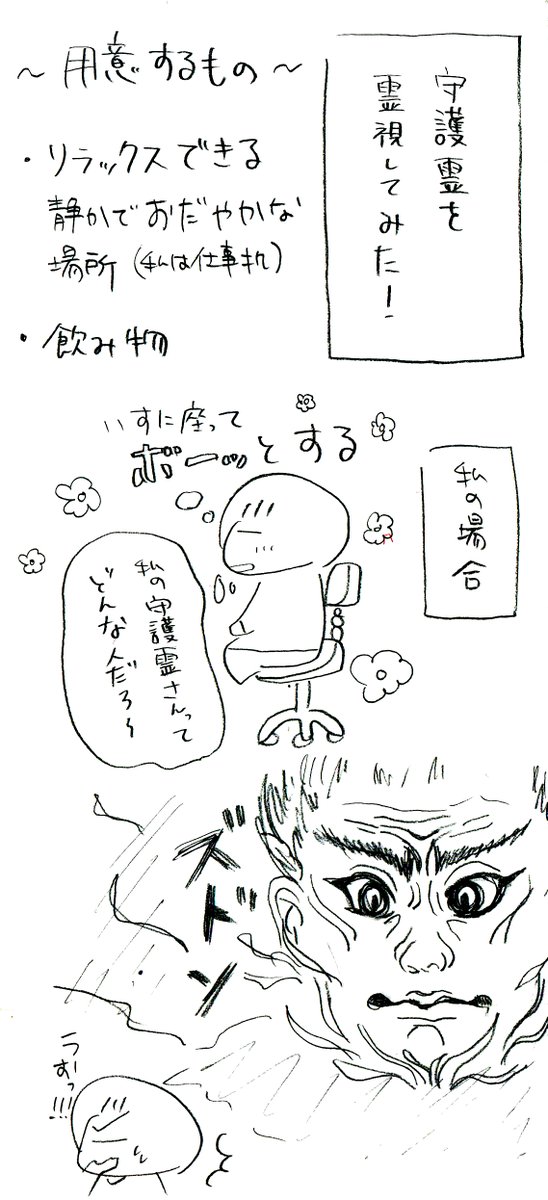 守護霊を
霊視してみた!
～用意するもの～
・リラックスできる
静かでおだやかな
場所(私は仕事机)
・飲み物
私の場合
いすに座って
ボーッとする
私の守護霊さんって
どんな人だろ～
ズドン
うおっ!!!